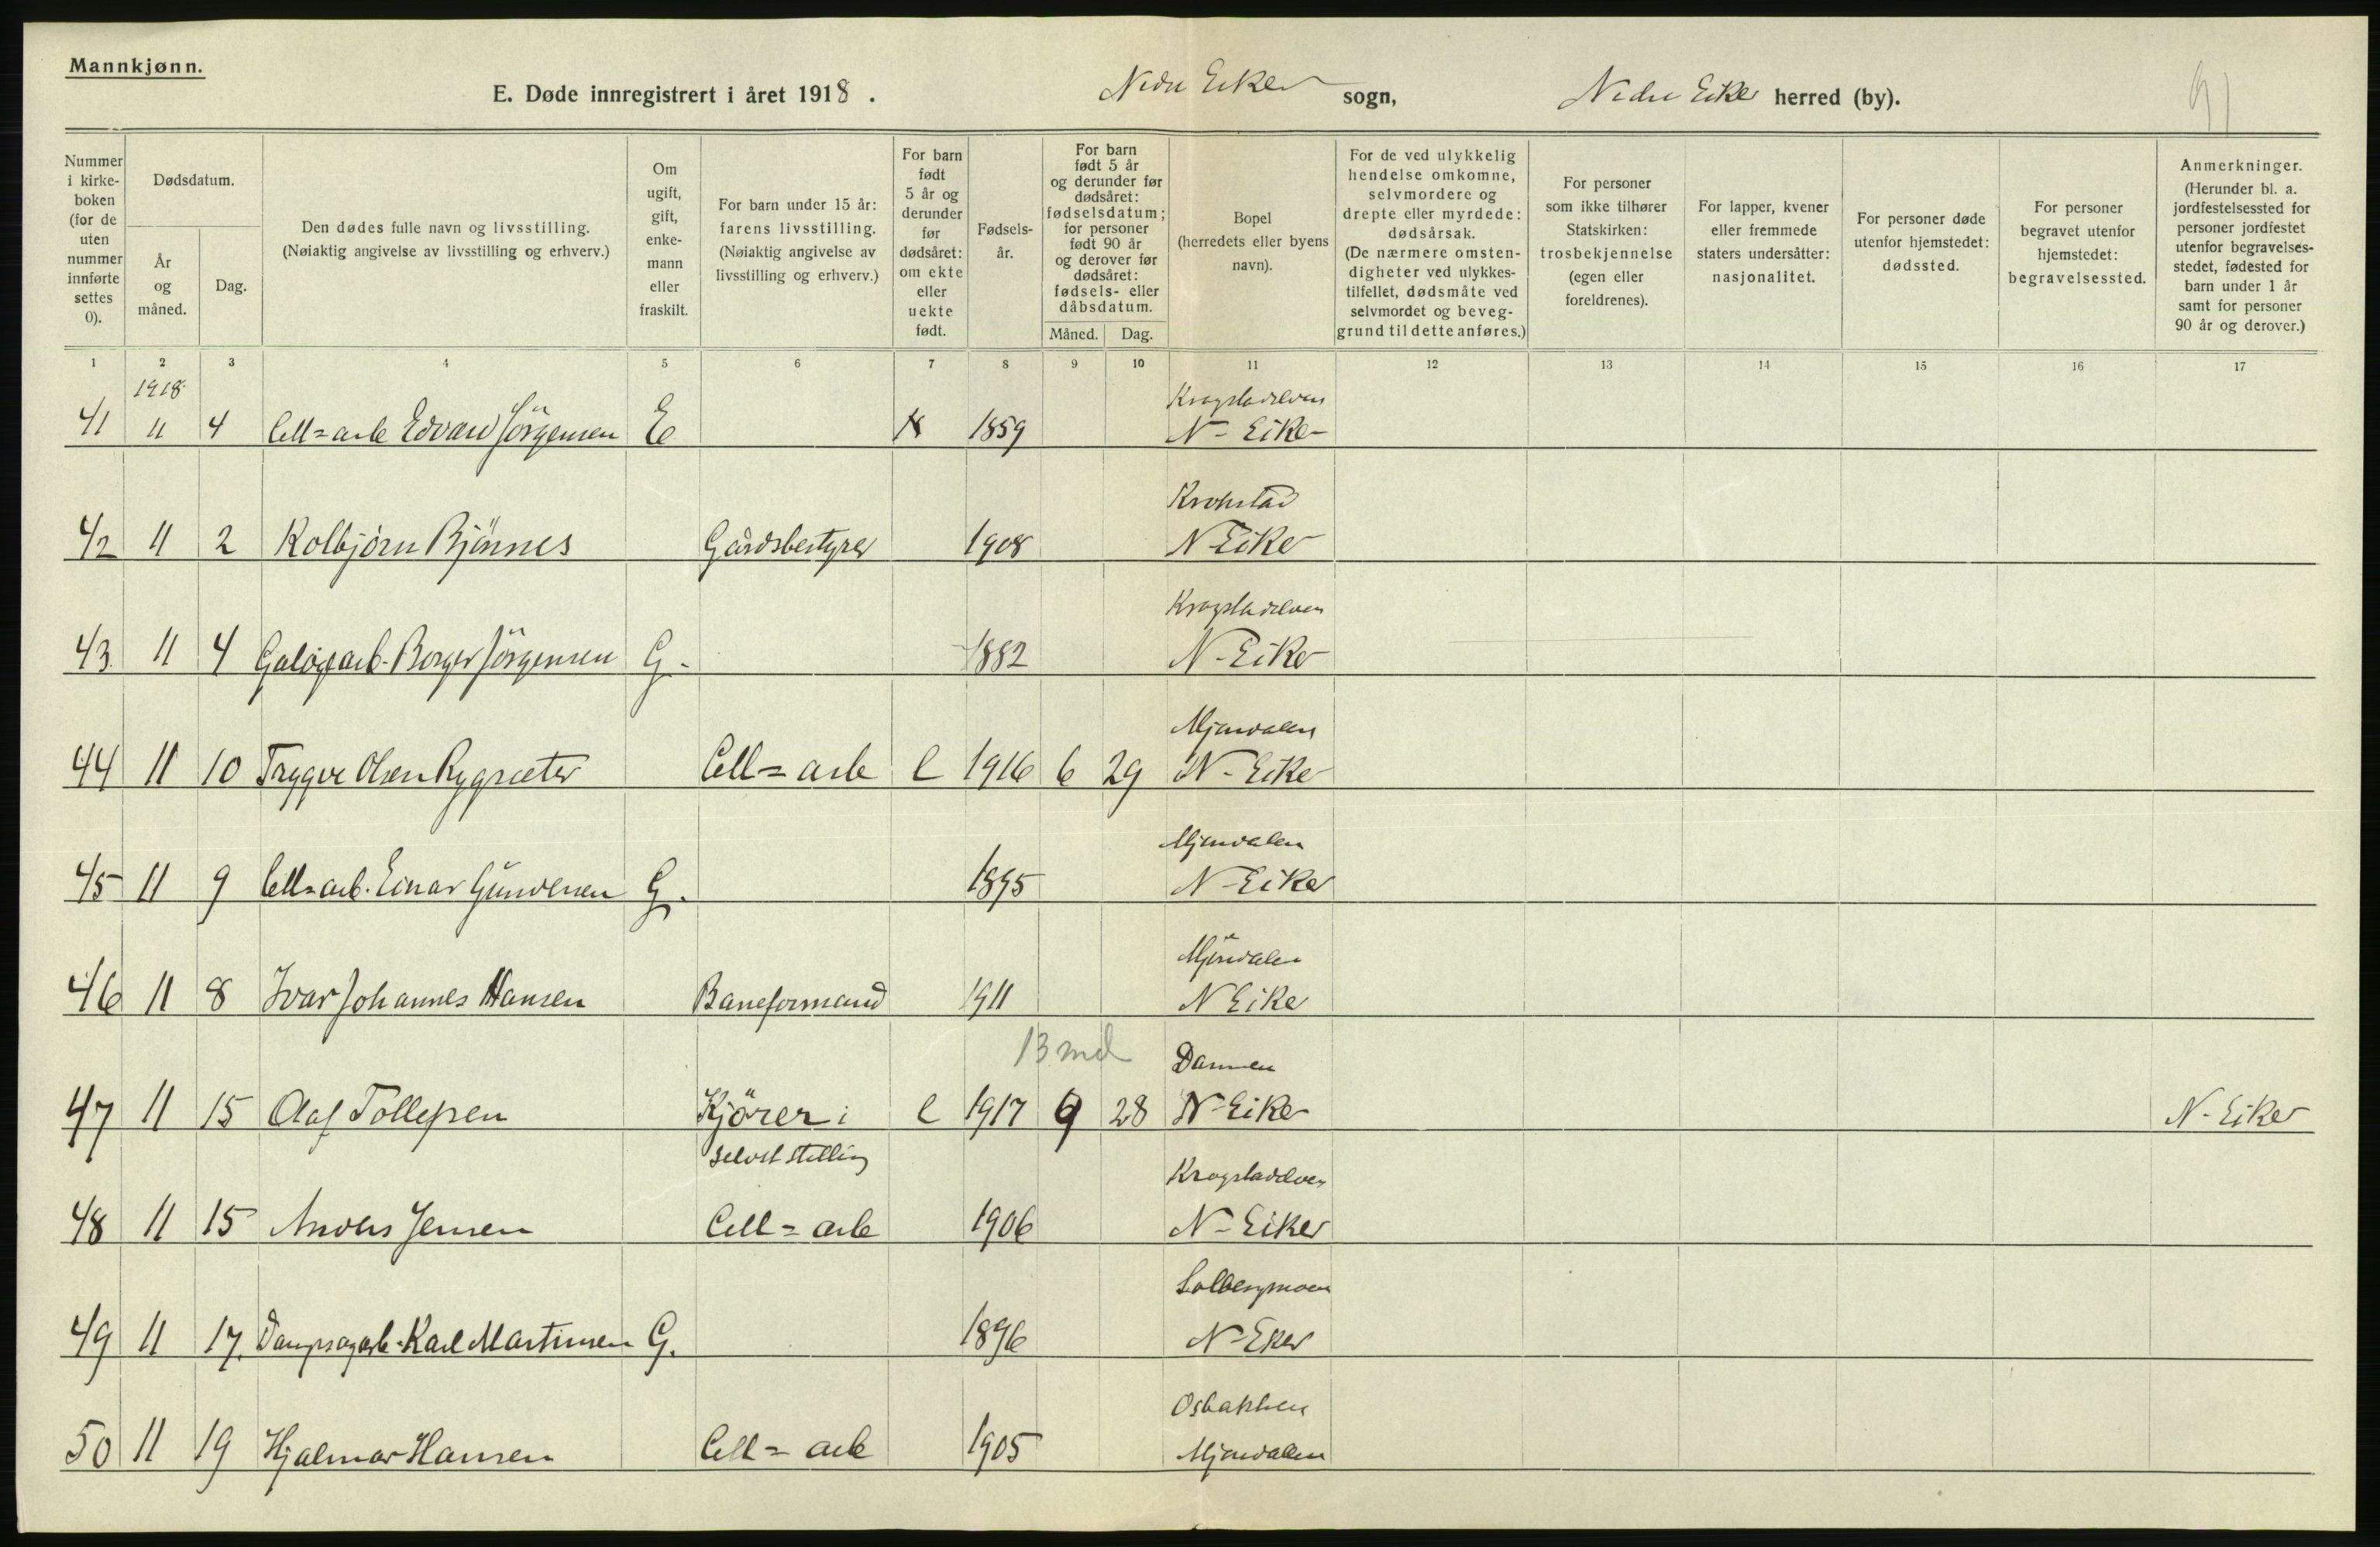 Mannkjønn.
E. Døde innregistrert i året 1918. Nedre Eiker sogn, Nedre Eiker herred (by). 91
Nummer i kirkeboken (for de uten nummer innførte settes 0). | Dødsdatum. År og måned. | Dag. | Den dødes fulle navn og livsstilling. (Nøiaktig angivelse av livsstilling og erhverv.) | Om ugift, gift, enkemann eller fraskilt. | For barn under 15 år: farens livsstilling. (Nøiaktig angivelse av livsstilling og erhverv.) | For barn født 5 år og derunder før dødsåret: om ekte eller uekte født. | Fødselsår. | For barn født 5 år og derunder før dødsåret: fødselsdatum; for personer født 90 år og derover før dødsåret: fødsels- eller dåbsdatum. Måned. | Dag. | Bopel (herredets eller byens navn). | For de ved ulykkelig hendelse omkomne, selvmordere og drepte eller myrdede: dødsårsak. (De nærmere omstendigheter ved ulykkestilfellet, dødsmåte ved selvmordet og beveggrund til dette anføres.) | For personer som ikke tilhører Statskirken: trosbekjennelse (egen eller foreldrenes). | For lapper, kvener eller fremmede staters undersåtter: nasjonalitet. | For personer døde utenfor hjemstedet: dødssted. | For personer begravet utenfor hjemstedet: begravelsessted. | Anmerkninger. (Herunder bl. a. jordfestelsessted for personer jordfestet utenfor begravelsesstedet, fødested for barn under 1 år samt for personer 90 år og derover.)
1 2 3 4 5 6 7 8 9 10 11 12 13 14 15 16 17
1918
Krogstadelven
41 11 4 Cell=arb Edvard Jörgensen E 1859 N- Eiker
Krokstad
42 11 2 Kolbjörn Bjönnes Gårdsbestyrer 1908 N-Eiker
Krogstadelven
43 11 4 Borger Jörgensen G. 1882 N-Eiker
Mjøndalen
44 11 10 Trygve Olsen Rygsæter Cell=arb e 1916 6 29 N-Eiker
Mjøndalen
45 11 9 Cell=arb. Einar Gundersen G. 1895 N-Eiker
Mjöndalen
46 11 8 Ivar Johannes Hansen Baneformand 1911 N Eiker
13 md
Dammen
47 11 15 Olaf Tollefsen Kjörer i e 1917 9 28 N-Eiker N-Eiker
selvst stilling
Krogstadelven
48 11 15 Anders Jensen Cell=arb 1906 N-Eiker
Solbergmoen
49 11 17. Dampsagarb. Karl Martinsen G. 1896 N-Eker
Osbakken
50 11 19 Hjalmar Hansen Cell=arb 1905 Mjøndalen